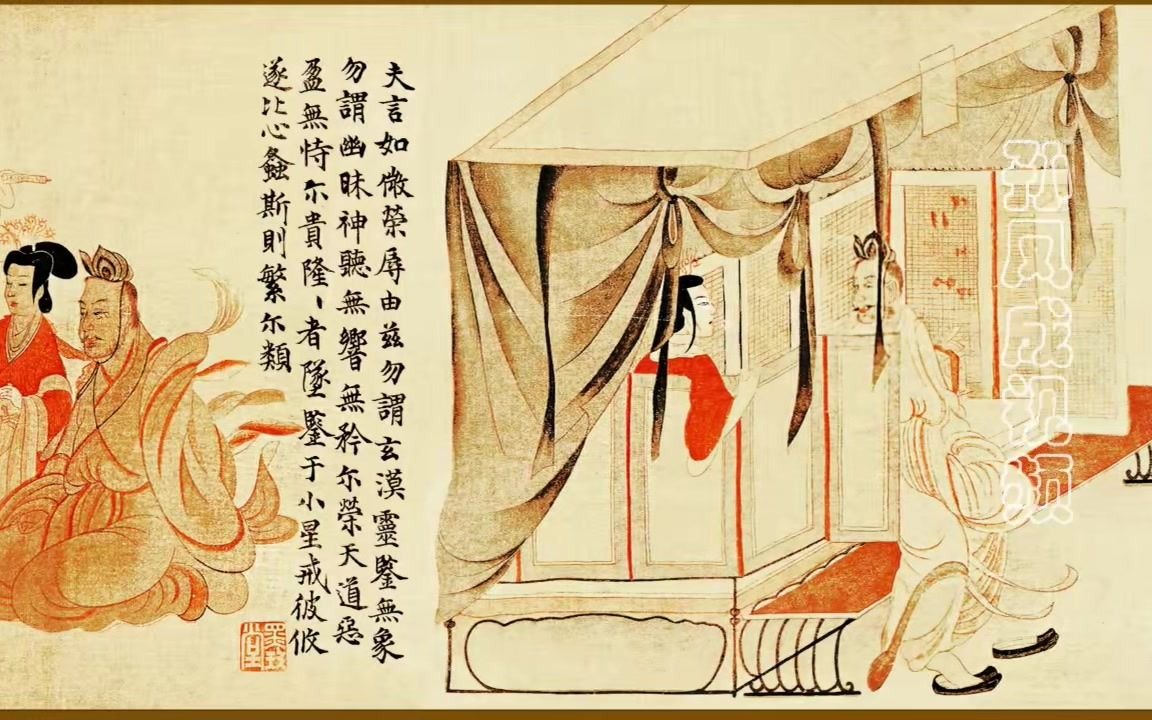 风成视频
夫言如微榮辱由茲勿謂玄漠靈鑒無象
勿謂幽昧神聽無響無矜尒榮天道惡
盈無恃尒貴隆、者墜鑒于小星戒彼攸
遂比心螽斯則繁尒類